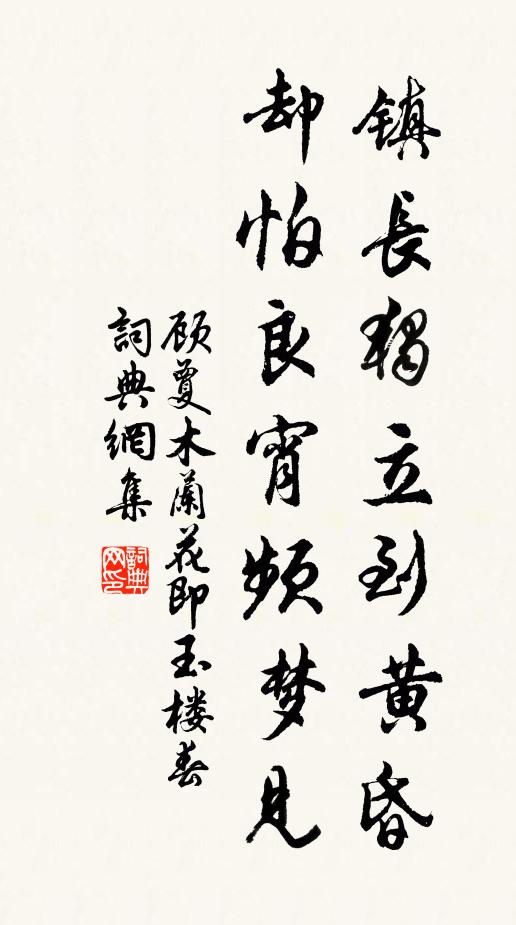 镇長獨立到黄昏
却怕良宵频梦見
顾夐木蘭花即玉楼春
詞典網集
詞典网印